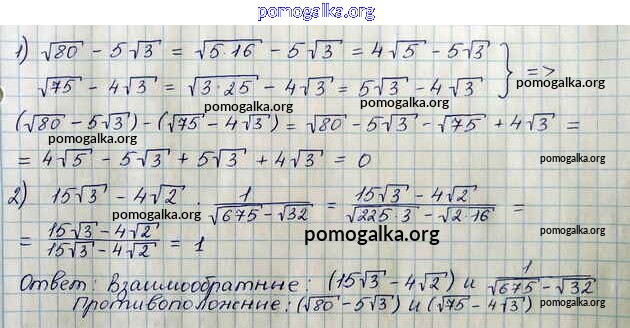 pomogalka.org
1) √80 - 5√3 = √5·16 - 5√3 = 4√5 - 5√3 } =>
pomogalka.org
√75 - 4√3 = √3·25 - 4√3 = 5√3 - 4√3
pomogalka.org
pomogalka.org
pomogalka.org
(√80 - 5√3) - (√75 - 4√3) = √80 - 5√3 - √75 + 4√3 =
pomogalka.org
= 4√5 - 5√3 + 5√3 + 4√3 = 0
pomogalka.org
2) 15√3 - 4√2 · 1/(√675 - √32) = (15√3 - 4√2)/(√225·3 - √2·16) =
pomogalka.org
= (15√3 - 4√2)/(15√3 - 4√2) = 1
pomogalka.org
Ответ: Взаимообратные: (15√3 - 4√2) и 1/(√675 - √32)
Противоположение: (√80 - 5√3) и (√75 - 4√3)
pomogalka.org